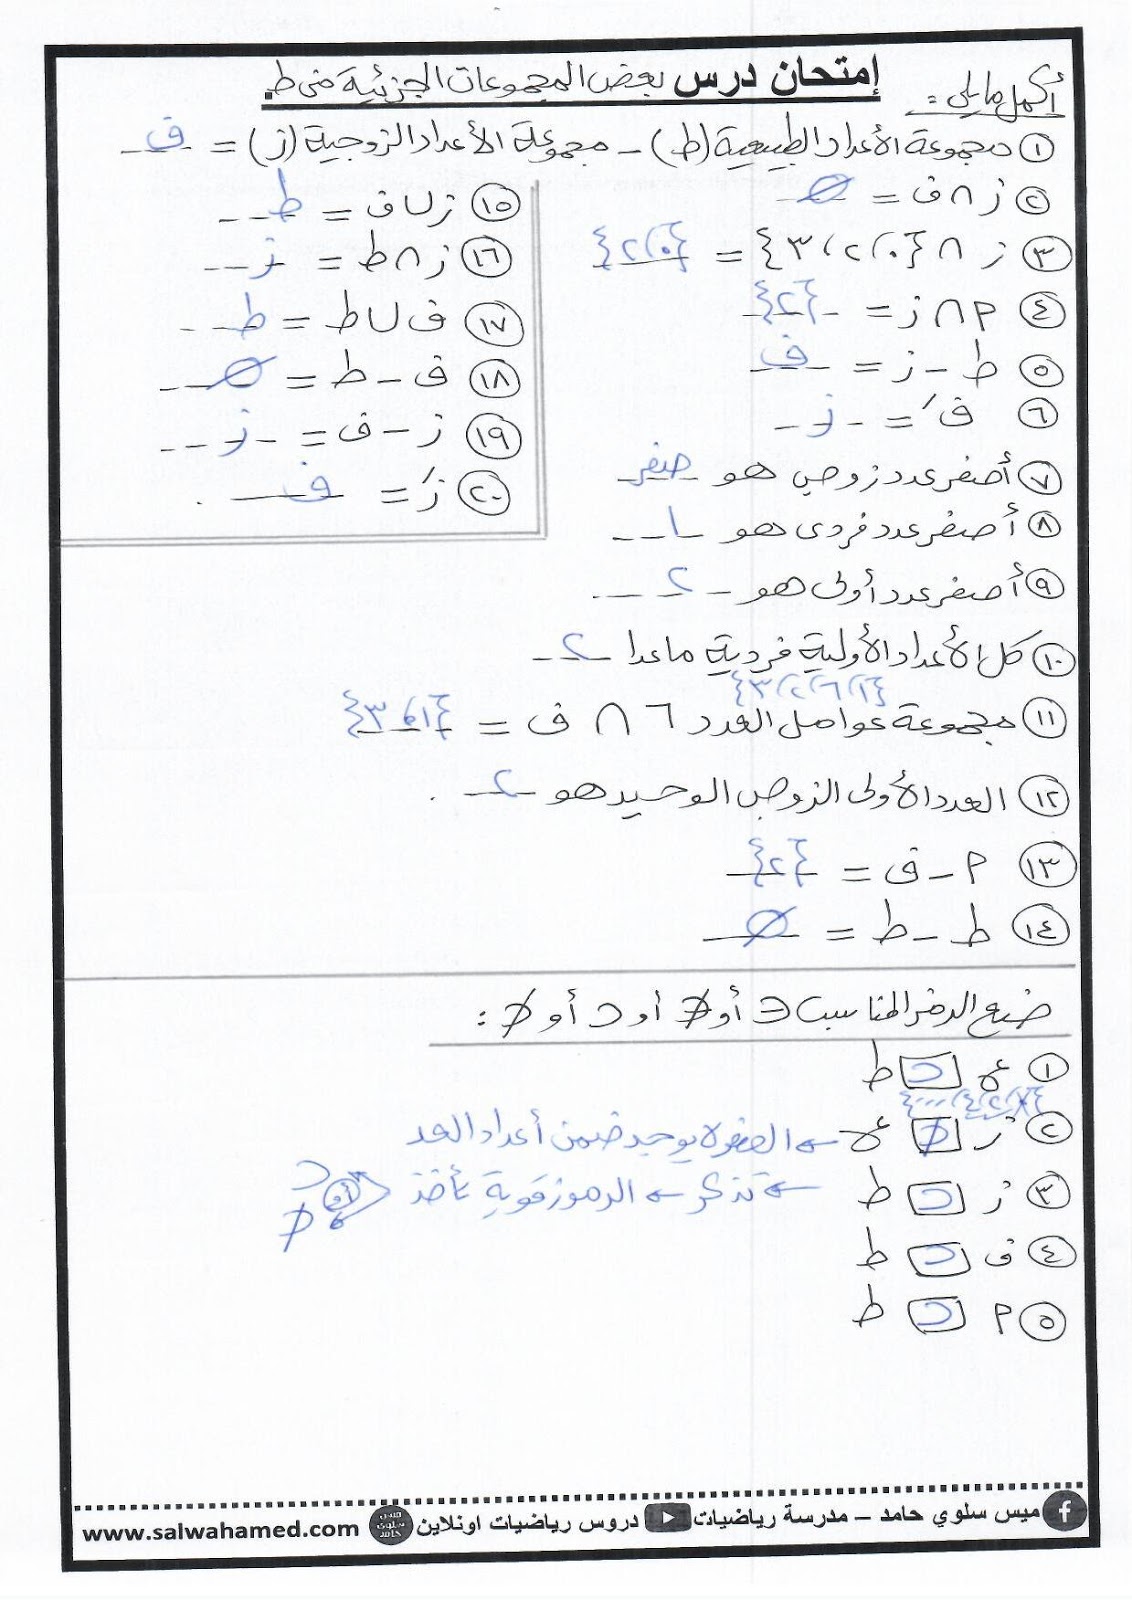 إمتحان درس بعض المجموعات الجزئية من ط.
أكمل ما يلى :
١ مجموعة الأعداد الطبيعية (ط) - مجموعة الأعداد الزوجية (ز) = ف
٢ ز ∩ ف = Ø
٣ ز ∩ {٠، ٢، ٣} = {٠، ٢}
٤ م ∩ ز = {٢}
٥ ط - ز = ف
٦ فَ = ز
٧ أصغر عدد زوجى هو صفر
٨ أصغر عدد فردى هو ١
٩ أصغر عدد أولى هو ٢
١٠ كل الأعداد الأولية فردية ماعدا ٢
{١، ٦، ٢، ٣}
١١ مجموعة عوامل العدد ٦ ∩ ف = {١، ٣}
١٢ العدد الأولى الزوجى الوحيد هو ٢ .
١٣ م - ف = {٢}
١٤ ط - ط = Ø
١٥ ز ∪ ف = ط
١٦ ز ∩ ط = ز
١٧ ف ∪ ط = ط
١٨ ف - ط = Ø
١٩ ز - ف = ز
٢٠ زَ = ف .
ضع الرمز المناسب ∋ أو ∌ أو ⊃ أو ⊅ :
١ ع ⊃ ط
{٠، ٢، ٤، ....}
٢ ز ⊅ ع ← الصفر لا يوجد ضمن أعداد العد
٣ ز ⊃ ط ← تذكر ← الرموز قوية تأخذ ⊃ أو ⊅
٤ ف ⊃ ط
٥ م ⊃ ط
ميس سلوي حامد – مدرسة رياضيات دروس رياضيات اونلاين ميس سلوى حامد www.salwahamed.com